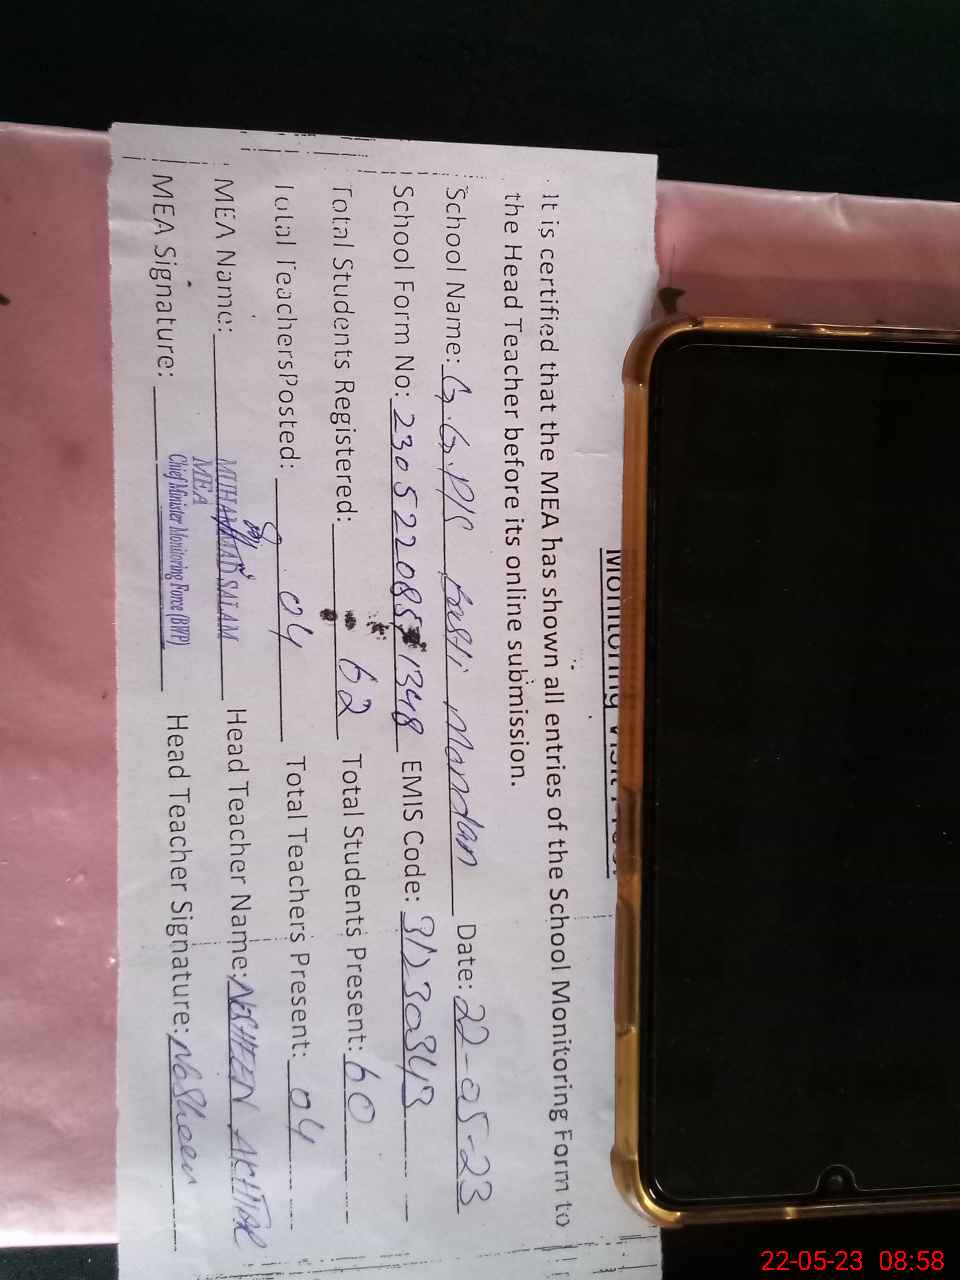 Monitoring Visit Proof
It is certified that the MEA has shown all entries of the School Monitoring Form to
the Head Teacher before its online submission.
School Name: G.G.P/S basti Mandan Date: 22-05-23
School Form No: 23052208571348 EMIS Code: 31230343
Total Students Registered: 62 Total Students Present: 60
Total TeachersPosted: 04 Total Teachers Present: 04
MEA Name: MUHAMMAD SALAM Head Teacher Name: NOSHEEN AKHTAR
MEA
MEA Signature: Chief Minister Monitoring Force (BWP) Head Teacher Signature: NoSheen
22-05-23 08:58